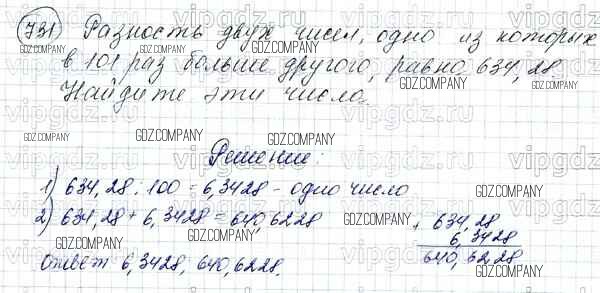 731) Разность двух чисел, одно из которых
в 101 раз больше другого, равно 634,28.
Найдите эти число.
Решение:
1) 634,28 : 100 = 6,3428 - одно число
2) 634,28 + 6,3428 = 640,6228
+ 634,28
6,3428
640,6228
Ответ 6,3428, 640,6228.
vipgdz.com
GDZ.COMPANY